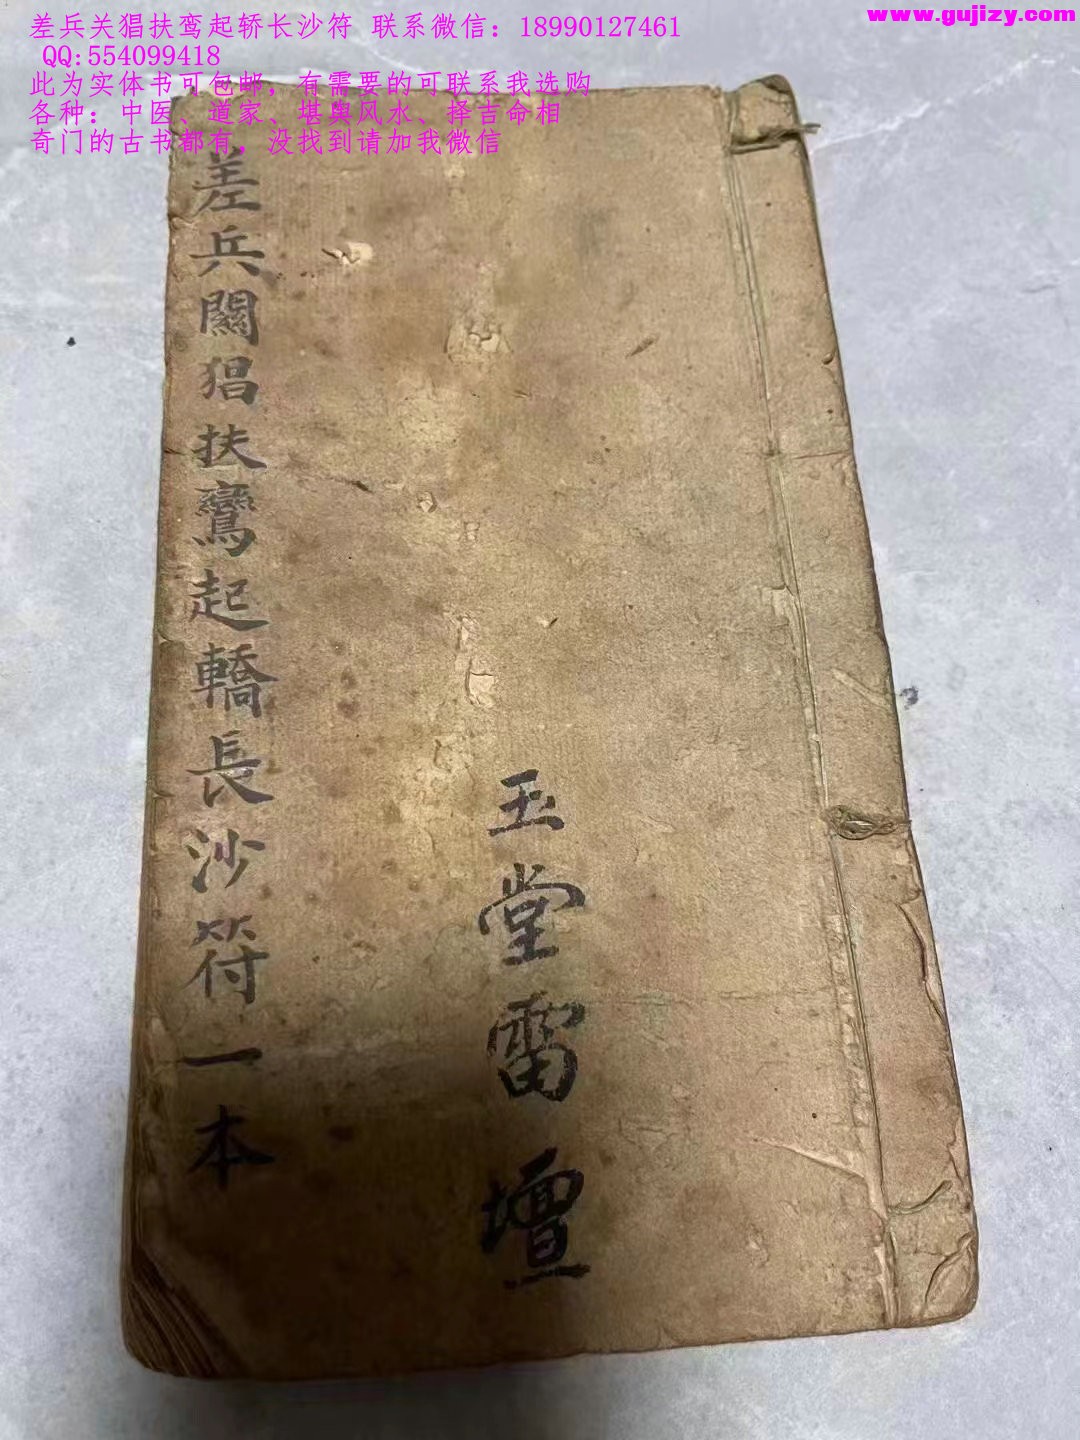 差兵关猖扶鸾起轿长沙符 联系微信：18990127461
QQ:554099418
此为实体书可包邮，有需要的可联系我选购
各种：中医、道家、堪舆风水、择吉命相
奇门的古书都有，没找到请加我微信
www.gujizy.com
差兵關猖扶鸞起轎長沙符一本
玉堂雷壇